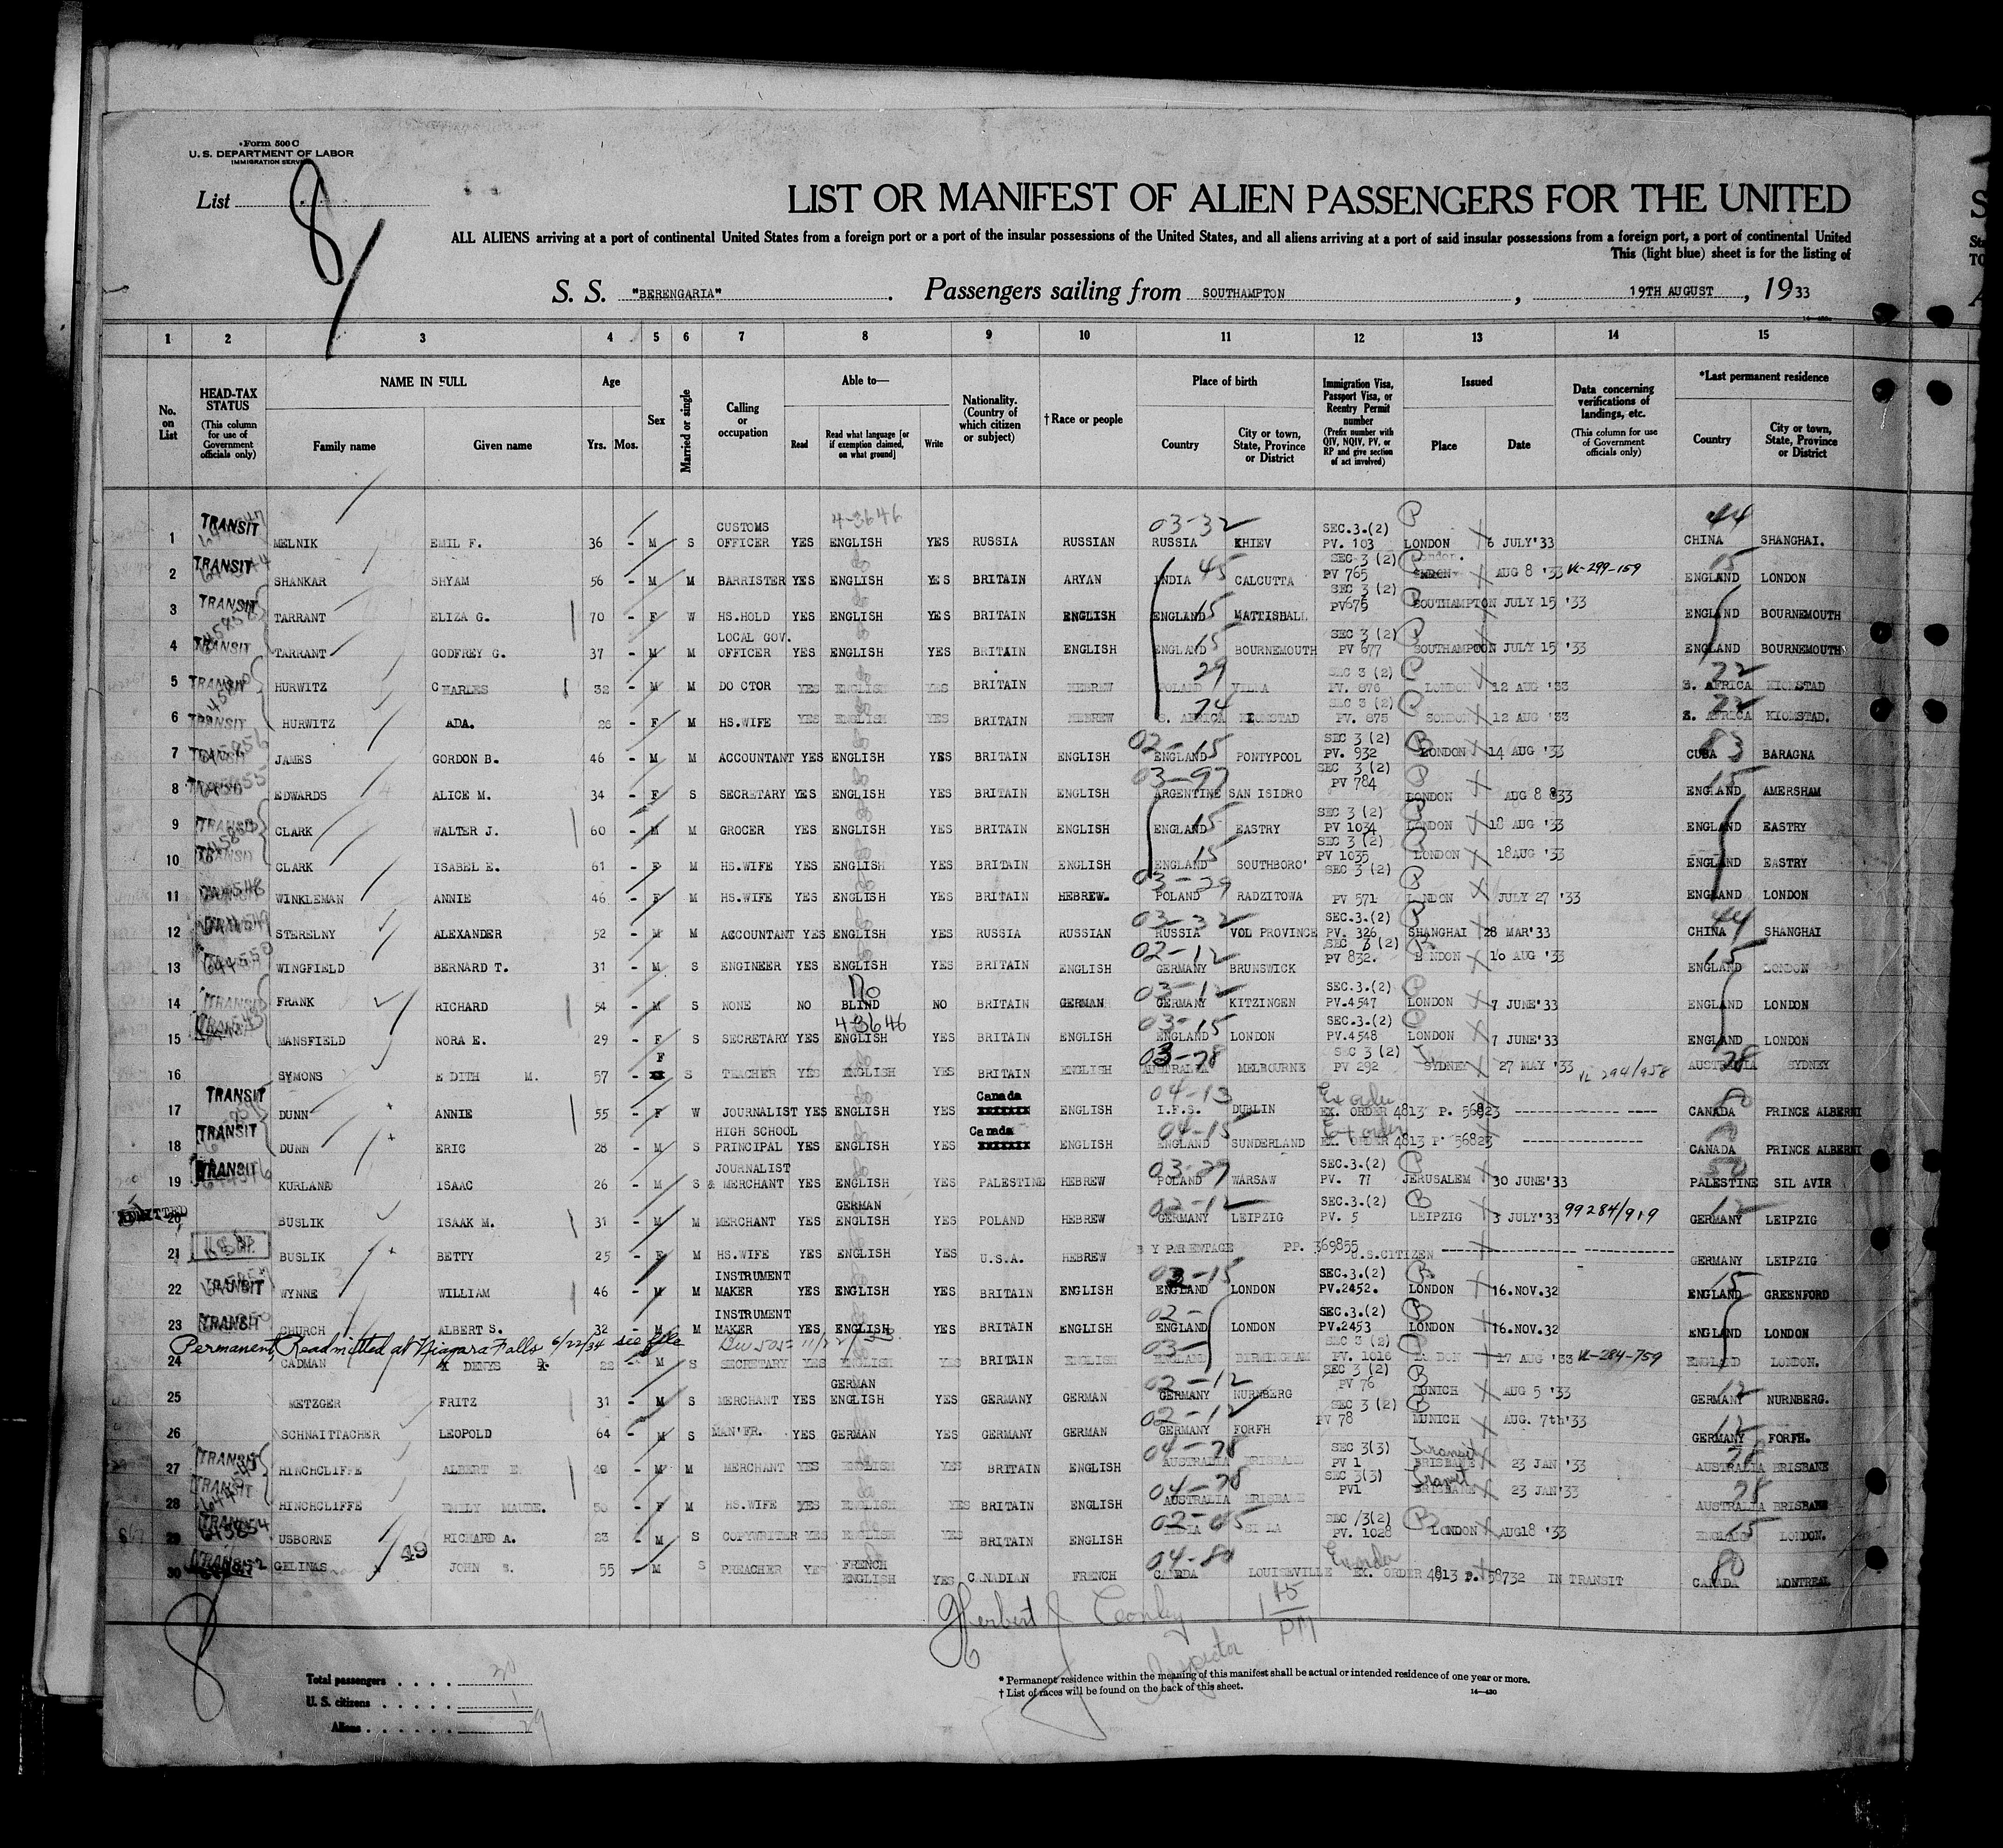 Form 500 C
U. S. DEPARTMENT OF LABOR
IMMIGRATION SERVICE
List 8
LIST OR MANIFEST OF ALIEN PASSENGERS FOR THE UNITED
ALL ALIENS arriving at a port of continental United States from a foreign port or a port of the insular possessions of the United States, and all aliens arriving at a port of said insular possessions from a foreign port, a port of continental United
This (light blue) sheet is for the listing of
S. S. "BERENGARIA". Passengers sailing from SOUTHAMPTON, 19TH AUGUST, 1933
1 2 3 4 5 6 7 8 9 10 11 12 13 14 15
No. on List
HEAD-TAX STATUS (This column for use of Government officials only)
NAME IN FULL
Family name Given name
Age
Yrs. Mos.
Sex
Married or single
Calling or occupation
Able to—
Read Read what language [or if exemption claimed, on what ground] Write
Nationality. (Country of which citizen or subject)
†Race or people
Place of birth
Country City or town, State, Province or District
Immigration Visa, Passport Visa, or Reentry Permit number (Prefix number with QIV, NQIV, PV, or RP and give section of act involved)
Issued
Place Date
Data concerning verifications of landings, etc. (This column for use of Government officials only)
*Last permanent residence
Country City or town, State, Province or District
1 TRANSIT MELNIK EMIL F. 36 - M S CUSTOMS OFFICER YES ENGLISH 4-3646 YES RUSSIA RUSSIAN 03-32 RUSSIA KHIEV SEC.3.(2) PV. 103 LONDON 6 JULY'33 44 CHINA SHANGHAI.
2 TRANSIT SHANKAR SHYAM 56 - M M BARRISTER YES ENGLISH YES BRITAIN ARYAN INDIA 45 CALCUTTA SEC 3 (2) PV 765 London. AUG 8 '33 VL-299-159 ENGLAND LONDON
3 TRANSIT TARRANT ELIZA G. 70 - F W HS.HOLD YES ENGLISH YES BRITAIN ENGLISH ENGLAND 15 MATTISHALL SEC 3 (2) PV675 SOUTHAMPTON JULY 15 '33 ENGLAND BOURNEMOUTH
4 TRANSIT TARRANT GODFREY G. 37 - M M LOCAL GOV. OFFICER YES ENGLISH YES BRITAIN ENGLISH ENGLAND 15 BOURNEMOUTH SEC 3 (2) PV 677 SOUTHAMPTON JULY 15 '33 ENGLAND BOURNEMOUTH
5 TRANSIT HURWITZ CHARLES 32 - M M DOCTOR YES ENGLISH YES BRITAIN HEBREW 29 POLAND VILNA SEC 3 (2) PV. 876 LONDON 12 AUG '33 S. AFRICA KIOMSTAD
6 TRANSIT HURWITZ ADA. 28 - F M HS.WIFE YES ENGLISH YES BRITAIN HEBREW 74 S. AFRICA KIOMSTAD SEC 3 (2) PV. 875 LONDON 12 AUG '33 S. AFRICA KIOMSTAD.
7 JAMES GORDON B. 46 - M M ACCOUNTANT YES ENGLISH YES BRITAIN ENGLISH 02-15 ENGLAND PONTYPOOL SEC 3 (2) PV. 932 LONDON 14 AUG '33 CUBA 83 BARAGNA
8 EDWARDS ALICE M. 34 - F S SECRETARY YES ENGLISH YES BRITAIN ENGLISH 03-97 ARGENTINE SAN ISIDRO SEC 3 (2) PV 784 LONDON AUG 8 833 15 ENGLAND AMERSHAM
9 TRANSIT CLARK WALTER J. 60 - M M GROCER YES ENGLISH YES BRITAIN ENGLISH ENGLAND 15 EASTRY SEC 3 (2) PV 1034 LONDON 18 AUG '33 ENGLAND EASTRY
10 TRANSIT CLARK ISABEL E. 61 - F M HS.WIFE YES ENGLISH YES BRITAIN ENGLISH 15 ENGLAND SOUTHBORO' SEC 3 (2) PV 1035 LONDON 18AUG '33 ENGLAND EASTRY
11 WINKLEMAN ANNIE 46 - F M HS.WIFE YES ENGLISH YES BRITAIN HEBREW. 03-29 POLAND RADZITOWA SEC 3 (2) PV 571 LONDON JULY 27 '33 ENGLAND LONDON
12 STERELNY ALEXANDER 52 - M M ACCOUNTANT YES ENGLISH YES RUSSIA RUSSIAN 03-32 RUSSIA VOL PROVINCE SEC.3.(2) PV. 326 SHANGHAI 28 MAR'33 CHINA 44 SHANGHAI
13 WINGFIELD BERNARD T. 31 - M S ENGINEER YES ENGLISH YES BRITAIN ENGLISH 02-12 GERMANY BRUNSWICK SEC 3 (2) PV 832. LONDON 10 AUG '33 15 ENGLAND LONDON
14 FRANK RICHARD 54 - M S NONE NO No BLIND NO BRITAIN GERMAN 03-12 GERMANY KITZINGEN SEC.3.(2) PV.4547 LONDON 7 JUNE'33 ENGLAND LONDON
15 MANSFIELD NORA E. 29 - F S SECRETARY YES 4-3646 ENGLISH YES BRITAIN ENGLISH 03-15 ENGLAND LONDON SEC.3.(2) PV.4548 LONDON 7 JUNE'33 ENGLAND LONDON
16 SYMONS EDITH M. 57 - F S TEACHER YES ENGLISH YES BRITAIN ENGLISH 03-78 AUSTRALIA MELBOURNE SEC 3 (2) PV 292 SYDNEY 27 MAY '33 VL 294/958 AUSTRALIA SYDNEY
17 TRANSIT DUNN ANNIE 55 - F W JOURNALIST YES ENGLISH YES Canada ENGLISH 04-13 I.F.S. DUBLIN Ex order EX. ORDER 4813 P. 56823 CANADA PRINCE ALBERNI
18 TRANSIT DUNN ERIC 28 - M S HIGH SCHOOL PRINCIPAL YES ENGLISH YES Canada ENGLISH 04-15 ENGLAND SUNDERLAND Ex order EX. ORDER 4813 P. 56823 CANADA PRINCE ALBERNI
19 TRANSIT KURLAND ISAAC 26 - M S JOURNALIST & MERCHANT YES ENGLISH YES PALESTINE HEBREW 03-29 POLAND WARSAW SEC.3.(2) PV. 71 JERUSALEM 30 JUNE'33 PALESTINE SIL AVIR
ADMITTED 20 BUSLIK ISAAK M. 31 - M M MERCHANT YES GERMAN ENGLISH YES POLAND HEBREW 02-12 GERMANY LEIPZIG SEC.3.(2) PV. 5 LEIPZIG 3 JULY'33 99284/919 12 GERMANY LEIPZIG
21 BUSLIK BETTY 25 - F M HS.WIFE YES ENGLISH YES U.S.A. HEBREW BY PARENTAGE PP. 369855 U.S.CITIZEN GERMANY LEIPZIG
22 TRANSIT WYNNE WILLIAM 46 - M M INSTRUMENT MAKER YES ENGLISH YES BRITAIN ENGLISH 03-15 ENGLAND LONDON SEC.3.(2) PV.2452. LONDON 16.NOV.32 15 ENGLAND GREENFORD
23 TRANSIT CHURCH ALBERT S. 32 - M M INSTRUMENT MAKER YES ENGLISH YES BRITAIN ENGLISH 02- ENGLAND LONDON SEC.3.(2) PV.2453 LONDON 16.NOV.32 ENGLAND LONDON
Permanent, Readmitted at Niagara Falls 6/22/34 see file
24 CADMAN DENYS 22 - M S SECRETARY YES ENGLISH YES BRITAIN ENGLISH 03- ENGLAND BIRMINGHAM SEC 3 (2) PV. 1016 LONDON 17 AUG '33 VL-284-759 ENGLAND LONDON.
25 METZGER FRITZ 31 - M S MERCHANT YES GERMAN ENGLISH YES GERMANY GERMAN 02-12 GERMANY NURNBERG SEC 3 (2) PV 76 MUNICH AUG 5 '33 12 GERMANY NURNBERG.
26 SCHNAITTACHER LEOPOLD 64 - M S MAN'FR. YES GERMAN YES GERMANY GERMAN 02-12 GERMANY FORFH SEC 3 (2) PV 78 MUNICH AUG. 7th'33 12 GERMANY FORFH.
27 TRANSIT HINCHCLIFFE ALBERT E. 49 - M M MERCHANT YES ENGLISH YES BRITAIN ENGLISH 04-78 AUSTRALIA BRISBANE SEC 3(3) PV 1 Transit BRISBANE 23 JAN '33 78 AUSTRALIA BRISBANE
28 TRANSIT HINCHCLIFFE EMILY MAUDE. 50 - F M HS.WIFE YES ENGLISH YES BRITAIN ENGLISH 04-78 AUSTRALIA BRISBANE SEC 3(3) PV1 Transit BRISBANE 23 JAN'33 78 AUSTRALIA BRISBANE
29 TRANSIT USBORNE RICHARD A. 23 - M S COPYWRITER YES ENGLISH YES BRITAIN ENGLISH 02-45 SEC /3(2) PV. 1028 LONDON AUG18 '33 15 ENGLAND LONDON.
30 TRANSIT GELINAS 49 JOHN S. 55 - M S PREACHER YES FRENCH ENGLISH YES CANADIAN FRENCH 04-80 CANADA LOUISEVILLE Ex order EX. ORDER 4813 P. 58732 IN TRANSIT 80 CANADA MONTREAL
Herbert J Conley
Inspector
1 15 PM
8
Total passengers . . . . 30
U. S. citizens . . . . . . 1
Aliens . . . . . . . 29
* Permanent residence within the meaning of this manifest shall be actual or intended residence of one year or more.
† List of races will be found on the back of this sheet.
14—430